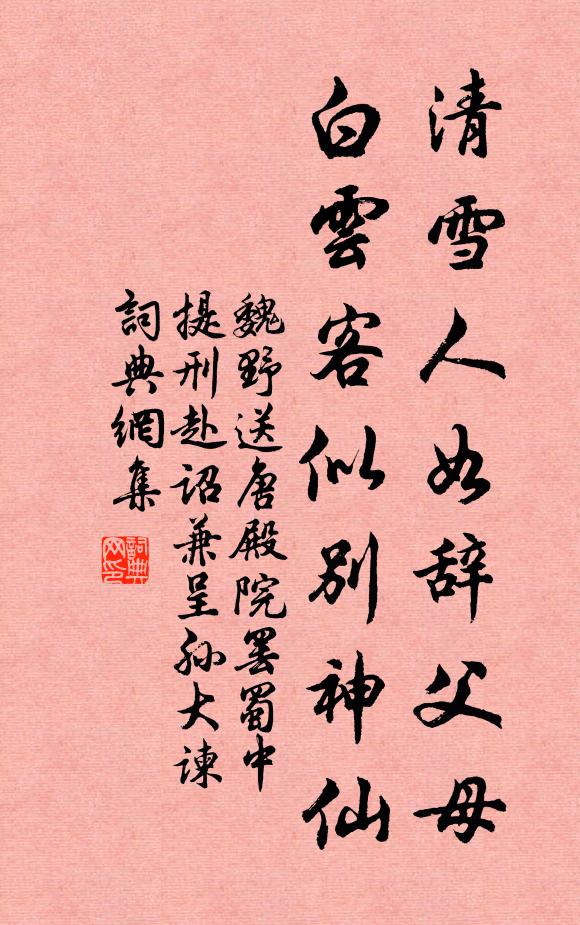 清雪人如辞父母
白雲客似別神仙
魏野送唐殿院罢蜀中
提刑赴詔兼呈孙大諫
詞典網集
詞典
网印